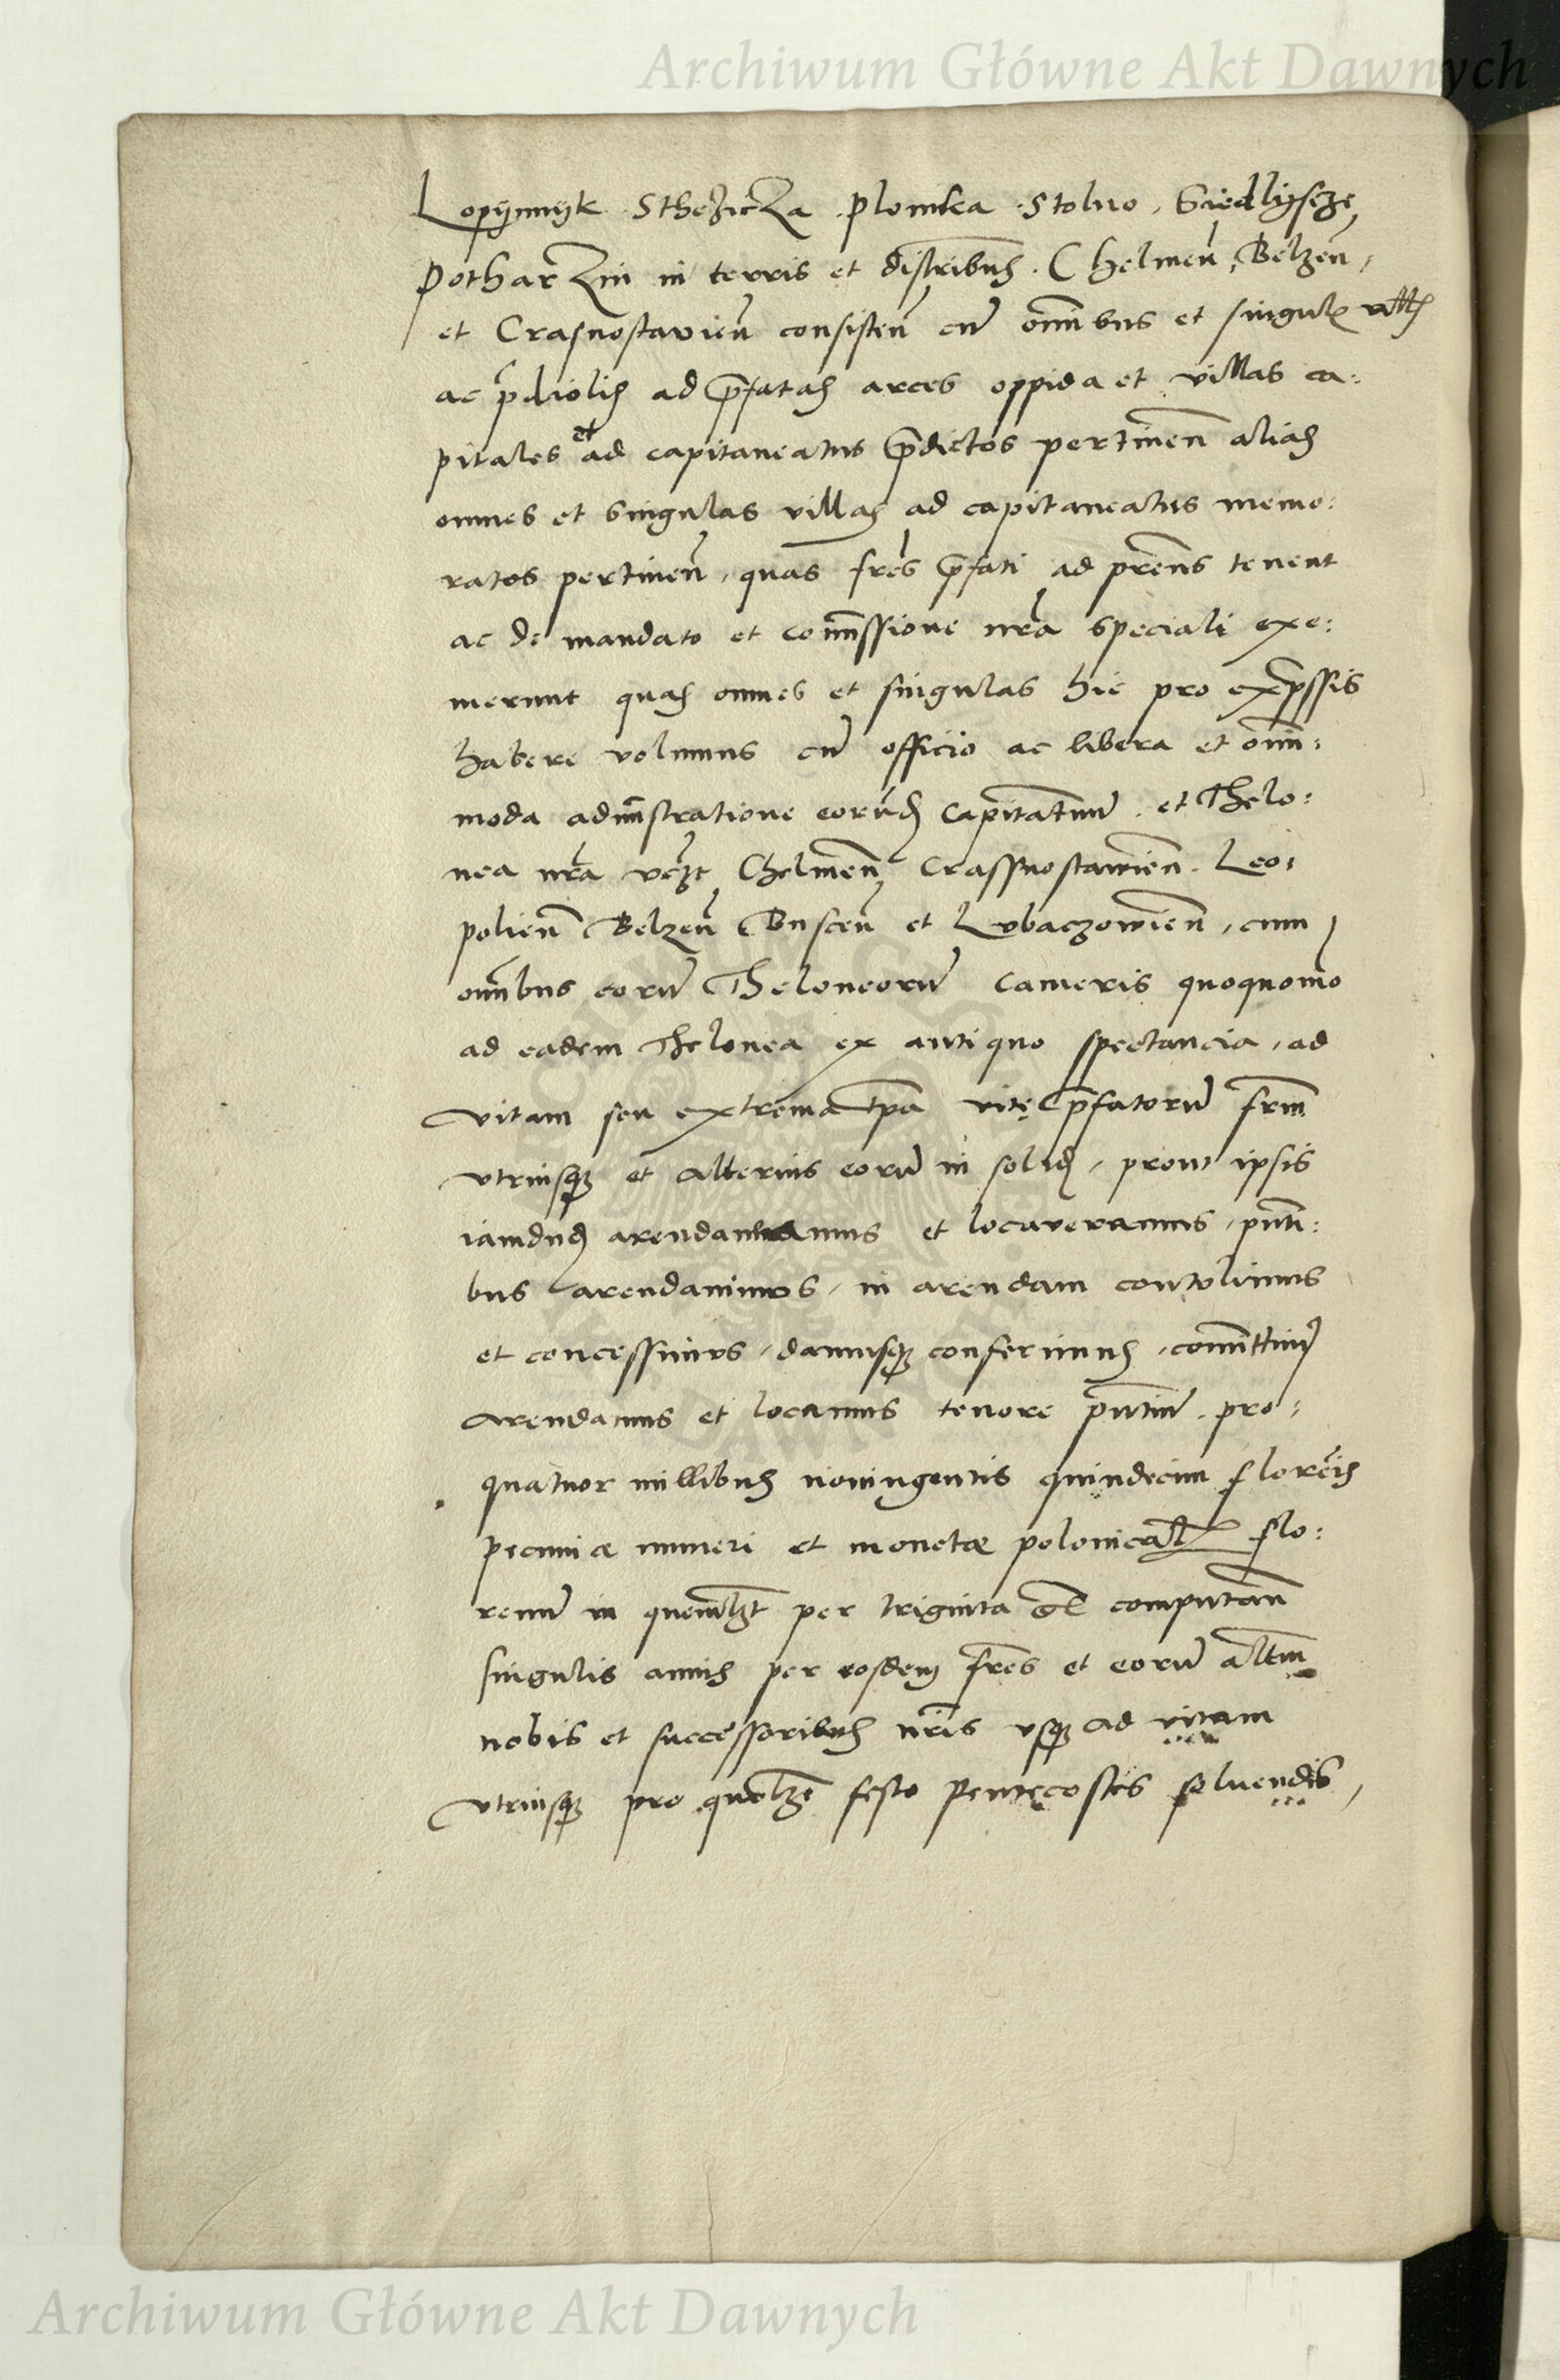 Archiwum Główne Akt Dawnych
Lopÿennÿk Stheżicza . Plonika . Stolno , Siedlÿscze
Potharzin in terris et districtibus . Chelmen̄ , Belzen̄ ,
et Crasnostavien̄ consisten̄ cū om̄ibus et singul villis
ac p̄diolis ad p̄fatas arces oppida et villas ca:
pitales et ad capitaneatus p̄dictos pertinen̄ alias
omnes et singulas villas ad capitaneatus memo:
ratos pertinen̄ , quas fr̄es p̄fati ad pr̄ens tenent
ac de mandato et com̄issione nr̄a speciali exe:
merunt quas omnes et singulas hic pro exp̄ssis
habere volumus cū officio ac libera et om̄i:
moda adm̄istratione eorūd capitan̄tuū . et Thelo:
nea nr̄a vcȝt Chelmen̄ Crassnostavien̄ . Leo:
polien̄ Belzen̄ Buscen̄ et Lubaczowien̄ , cum
om̄ibus eorū Theloneorū cameris quoquomō
ad eadem Thelonea ex antiquo spectancia , ad
vitam seu extrema tp̄a vitę p̄fatorū frm̄
vtriusq et alterius eorū in solid , prout ipsis
iamdud arendaueramus et locaveramus , pn̄ti:
bus arendavimus , in arendam contulimus
et concessimus , damusq conferimus , com̄ittimus
arendamus et locamus tenore pn̄tiū . pro:
quatuor millibus noningentis quindecim florenis
pecuniæ numeri et monetæ polonicalis flo:
renū in quemlȝt per triginta gr̄ computan̄
singulis annis per eosdem fr̄es et eorū altm̄
nobis et successoribus nr̄is vsq ad vitam
vtriusq pro quolȝt festo Pentecostes soluendis ,
Archiwum Główne Akt Dawnych